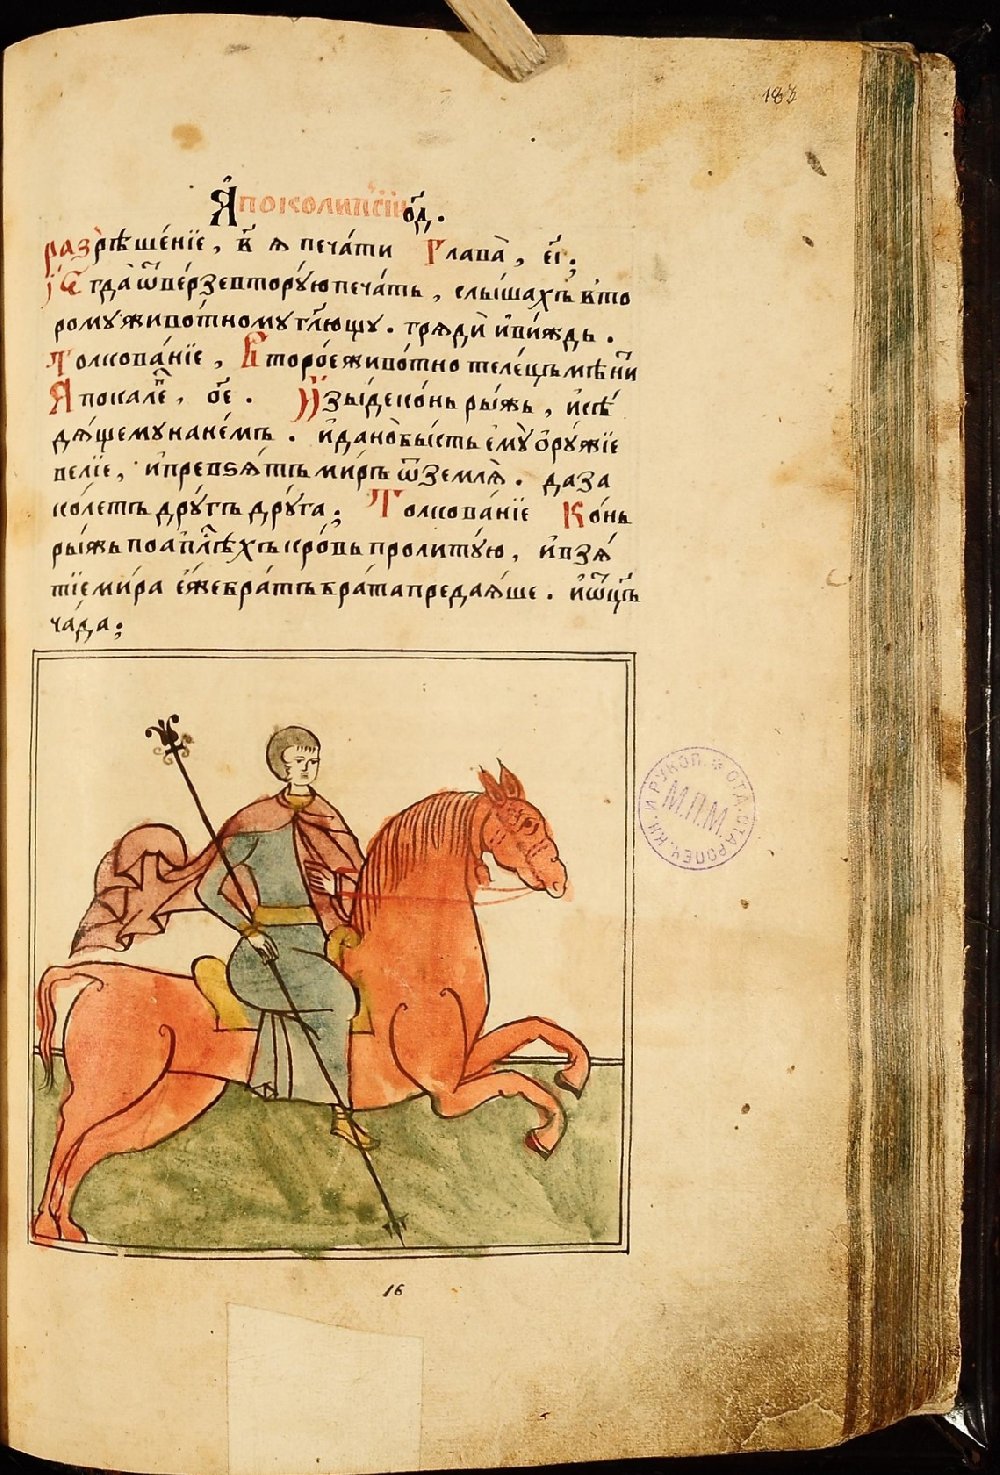 183
Апокалиѱїи о҃д.
разрѣше́нїе, в҃ѧ печа́ти Глава̀, є҃і;
Є҆гда̀ ѿве́рзе втору́ю печа́ть, слы́шахъ вто
рому живо́тному гл҃ющу. грѧдѝ и҆ ви́ждь.
Толкова́нїе, Второ́е живо́тно теле́цъ мѣни
Апокале, о҃е. И҆зы́де ко́нь ры́жь, и҆ сѣ
дѧ́щему на не́мъ. и҆ дано̀ бы́сть є҆мꙋ̀ ѻ҆рꙋ́жїе
ве́лїе, и҆ превзѧ́тъ ми́ръ ѿ землѧ̀. да за
ко́летъ дрꙋ́гъ дрꙋ́га; Толкова́нїе Ко́нь
ры́жь по а҆пл҃ѣхъ кро́вь проли́тꙋю, и҆ взѧ́
тїе ми́ра є҆́же бра́тъ бра́та предаѧ́ше. и҆ ѻ҆ц҃ъ
ча́да;
ОТД. СТАРОПЕЧ. КН. И РУКОП.
М.П.М.
16